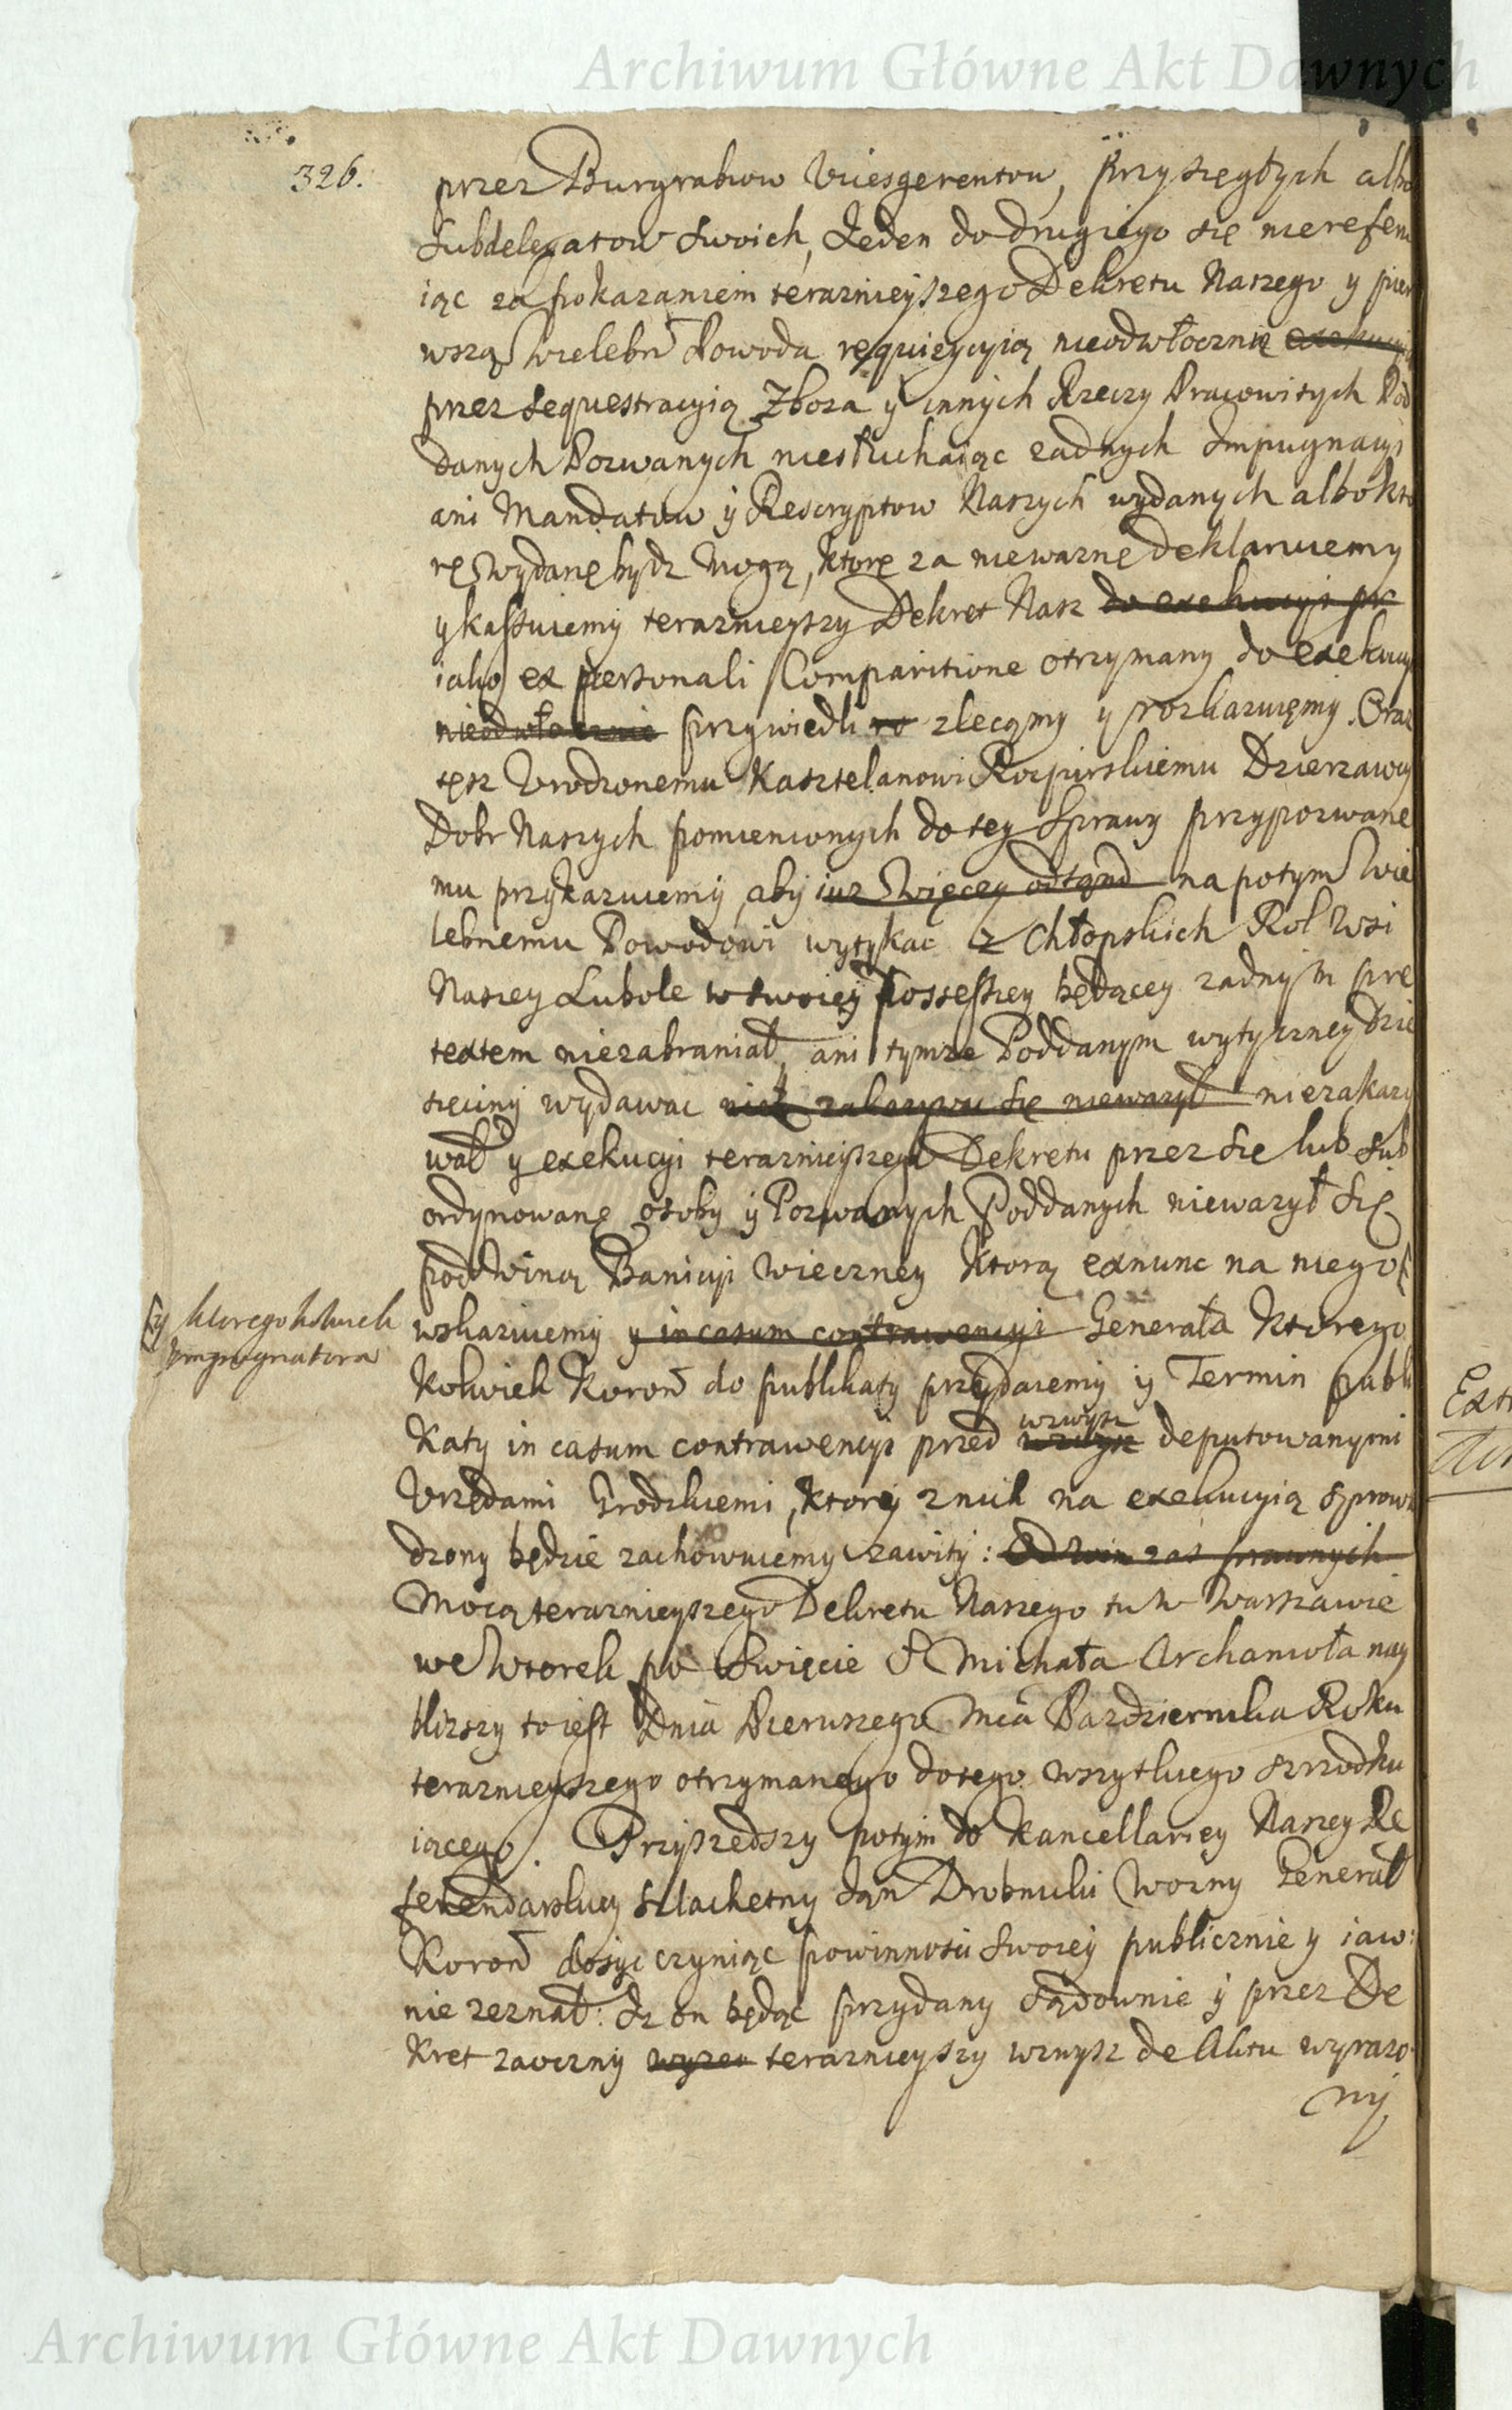 Archiwum Główne Akt Dawnych
326.
przez Burgrabiow Vicesgerentow, Przysięgłych albo
Subdelegatow swoich, Jeden do drugiego się niereferu
iąc za pokazaniem teraznieyszego Dekretu Naszego y pier
wszą Wielebń Powoda requizycyią nieodwłocznie exekucyią
przez sequestracyią Zboza y innych Rzeczy Pracowitych Pod
danych Pozwanych niesłuchaiąc zadnych Impugnacyi
ani Mandatow y Rescryptow Naszych wydanych albo kto
rę wydanę bydz mogą, ktorę za niewaznę deklaruiemy
y kassuiemy teraznieyszy Dekret Nasz do exekucyi pr
iako ex personali Comparitione otrzymany do exekucyi
nieodwłocznie przywiedli ro zlecamy y rozkazuięmy. Oraz
tęsz Vrodzonemu Kasztelanowi Rozpirskiemu Dzierzawcy
Dobr Naszych pomienionych do tey Sprawy przypozwane
mu przykazuiemy, aby iuz więcey odtąnd na potym Wie
lebnemu Powodowi wytykac z Chłopskich Rol Wsi
Naszey Lubole w swoiey possessyey będącey zadnym pre
textem niezabraniał, ani tymze Poddanym wytyczney Dzie
sięciny wydawac niezakazy
wał y exekucyi teraznieyszego Dekretu przez się lub sub
ordynowanę osoby y Pozwanych Poddanych niewazył się
pod Winą Banicyi wieczney Ktorą exnunc na niego
y ktoregokolwiek
Impugnatora
wskazuiemy y in casum contrawencyi Generała Ktorego
Kolwiek Koroń do publikaty przydaiemy y Termin publi
Katy in casum contrawencyi przed wzwysz deputowanymi
Vrzędami Grodzkiemi, ktorey znich na exekucyią sprowa
dzony będzie zachowuiemy zawity: Od Win zas prawnych
Mocą teraznieyszego Dekretu Naszego tu w Warszawie
we Wtorek po Swięcie S Michała Archanioła nay
blizszy to iest Dnia Pierwszego Mca Pazdziernika Roku
teraznieyszego otrzymanego do tego wszytkiego szrzodku
iącego. Przyszedszy potym do Kancellaryey Naszey Re
ferendarskiey Szlachetny Jan Drobnicki Wozny Generał
Koroń dosyc czyniąc powinnosci swoiey publicznie y iaw:
nie zeznał: Iz on będąc przydany sądownie y przez De
kret zaoczny teraznieyszy wzwysz de Actu wyrazo
ny
Archiwum Główne Akt Dawnych